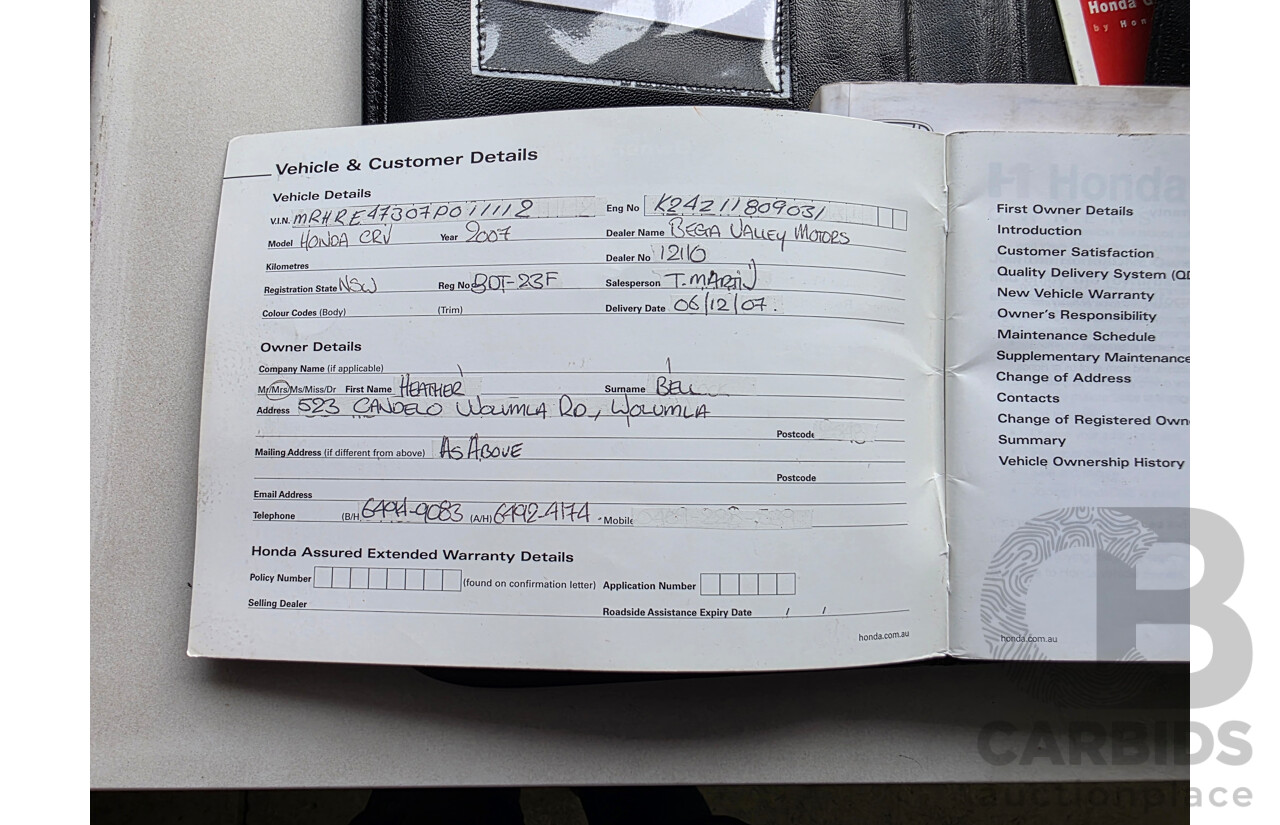 Honda
by Hon
Vehicle & Customer Details
Vehicle Details
V.I.N. MRHRE47307P011112 Eng No K24Z11809031
Model HONDA CRV Year 2007 Dealer Name BEGA VALLEY MOTORS
Kilometres Dealer No 12110
Registration State NSW Reg No BDT-23F Salesperson T. MARTIN
Colour Codes (Body) (Trim) Delivery Date 06/12/07.
Owner Details
Company Name (if applicable)
Mr/Mrs/Ms/Miss/Dr First Name HEATHER Surname BELL
Address 523 CANDELO WOLUMLA RD, WOLUMLA
Postcode
Mailing Address (if different from above) AS ABOVE
Postcode
Email Address
Telephone (B/H) 6494-9083 (A/H) 6492-4174 Mobile
Honda Assured Extended Warranty Details
Policy Number (found on confirmation letter) Application Number
Selling Dealer Roadside Assistance Expiry Date / /
honda.com.au
Honda
First Owner Details
Introduction
Customer Satisfaction
Quality Delivery System (QD
New Vehicle Warranty
Owner's Responsibility
Maintenance Schedule
Supplementary Maintenance
Change of Address
Contacts
Change of Registered Own
Summary
Vehicle Ownership History
honda.com.au
CARBIDS
auctionplace